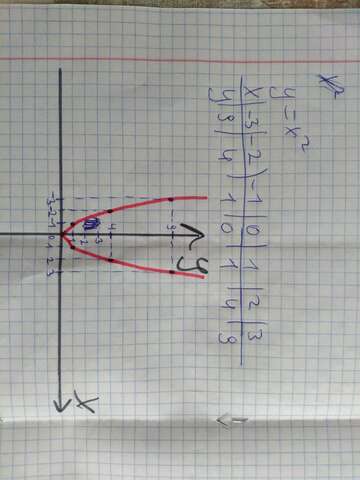 y = x²
x | -3 | -2 | -1 | 0 | 1 | 2 | 3
y | 9 | 4 | 1 | 0 | 1 | 4 | 9
y
9
4
3
2
1
-3 -2 -1 0 1 2 3
x